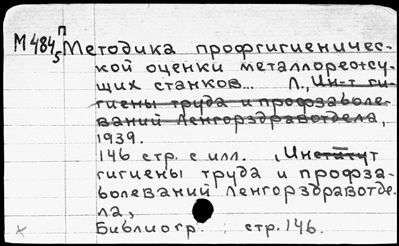 М 484 п/5 Методика профгигиеничес-
кой оценки металлореотсу-
щих станков... Л., Ин-т ги-
гиены труда и профзаболе-
ваний Ленгорздравотдела,
1939.
146 стр. с илл. , Институт
гигиены труда и профза-
болеваний Ленгорздравотде-
ла,
Библиогр.: стр. 146.